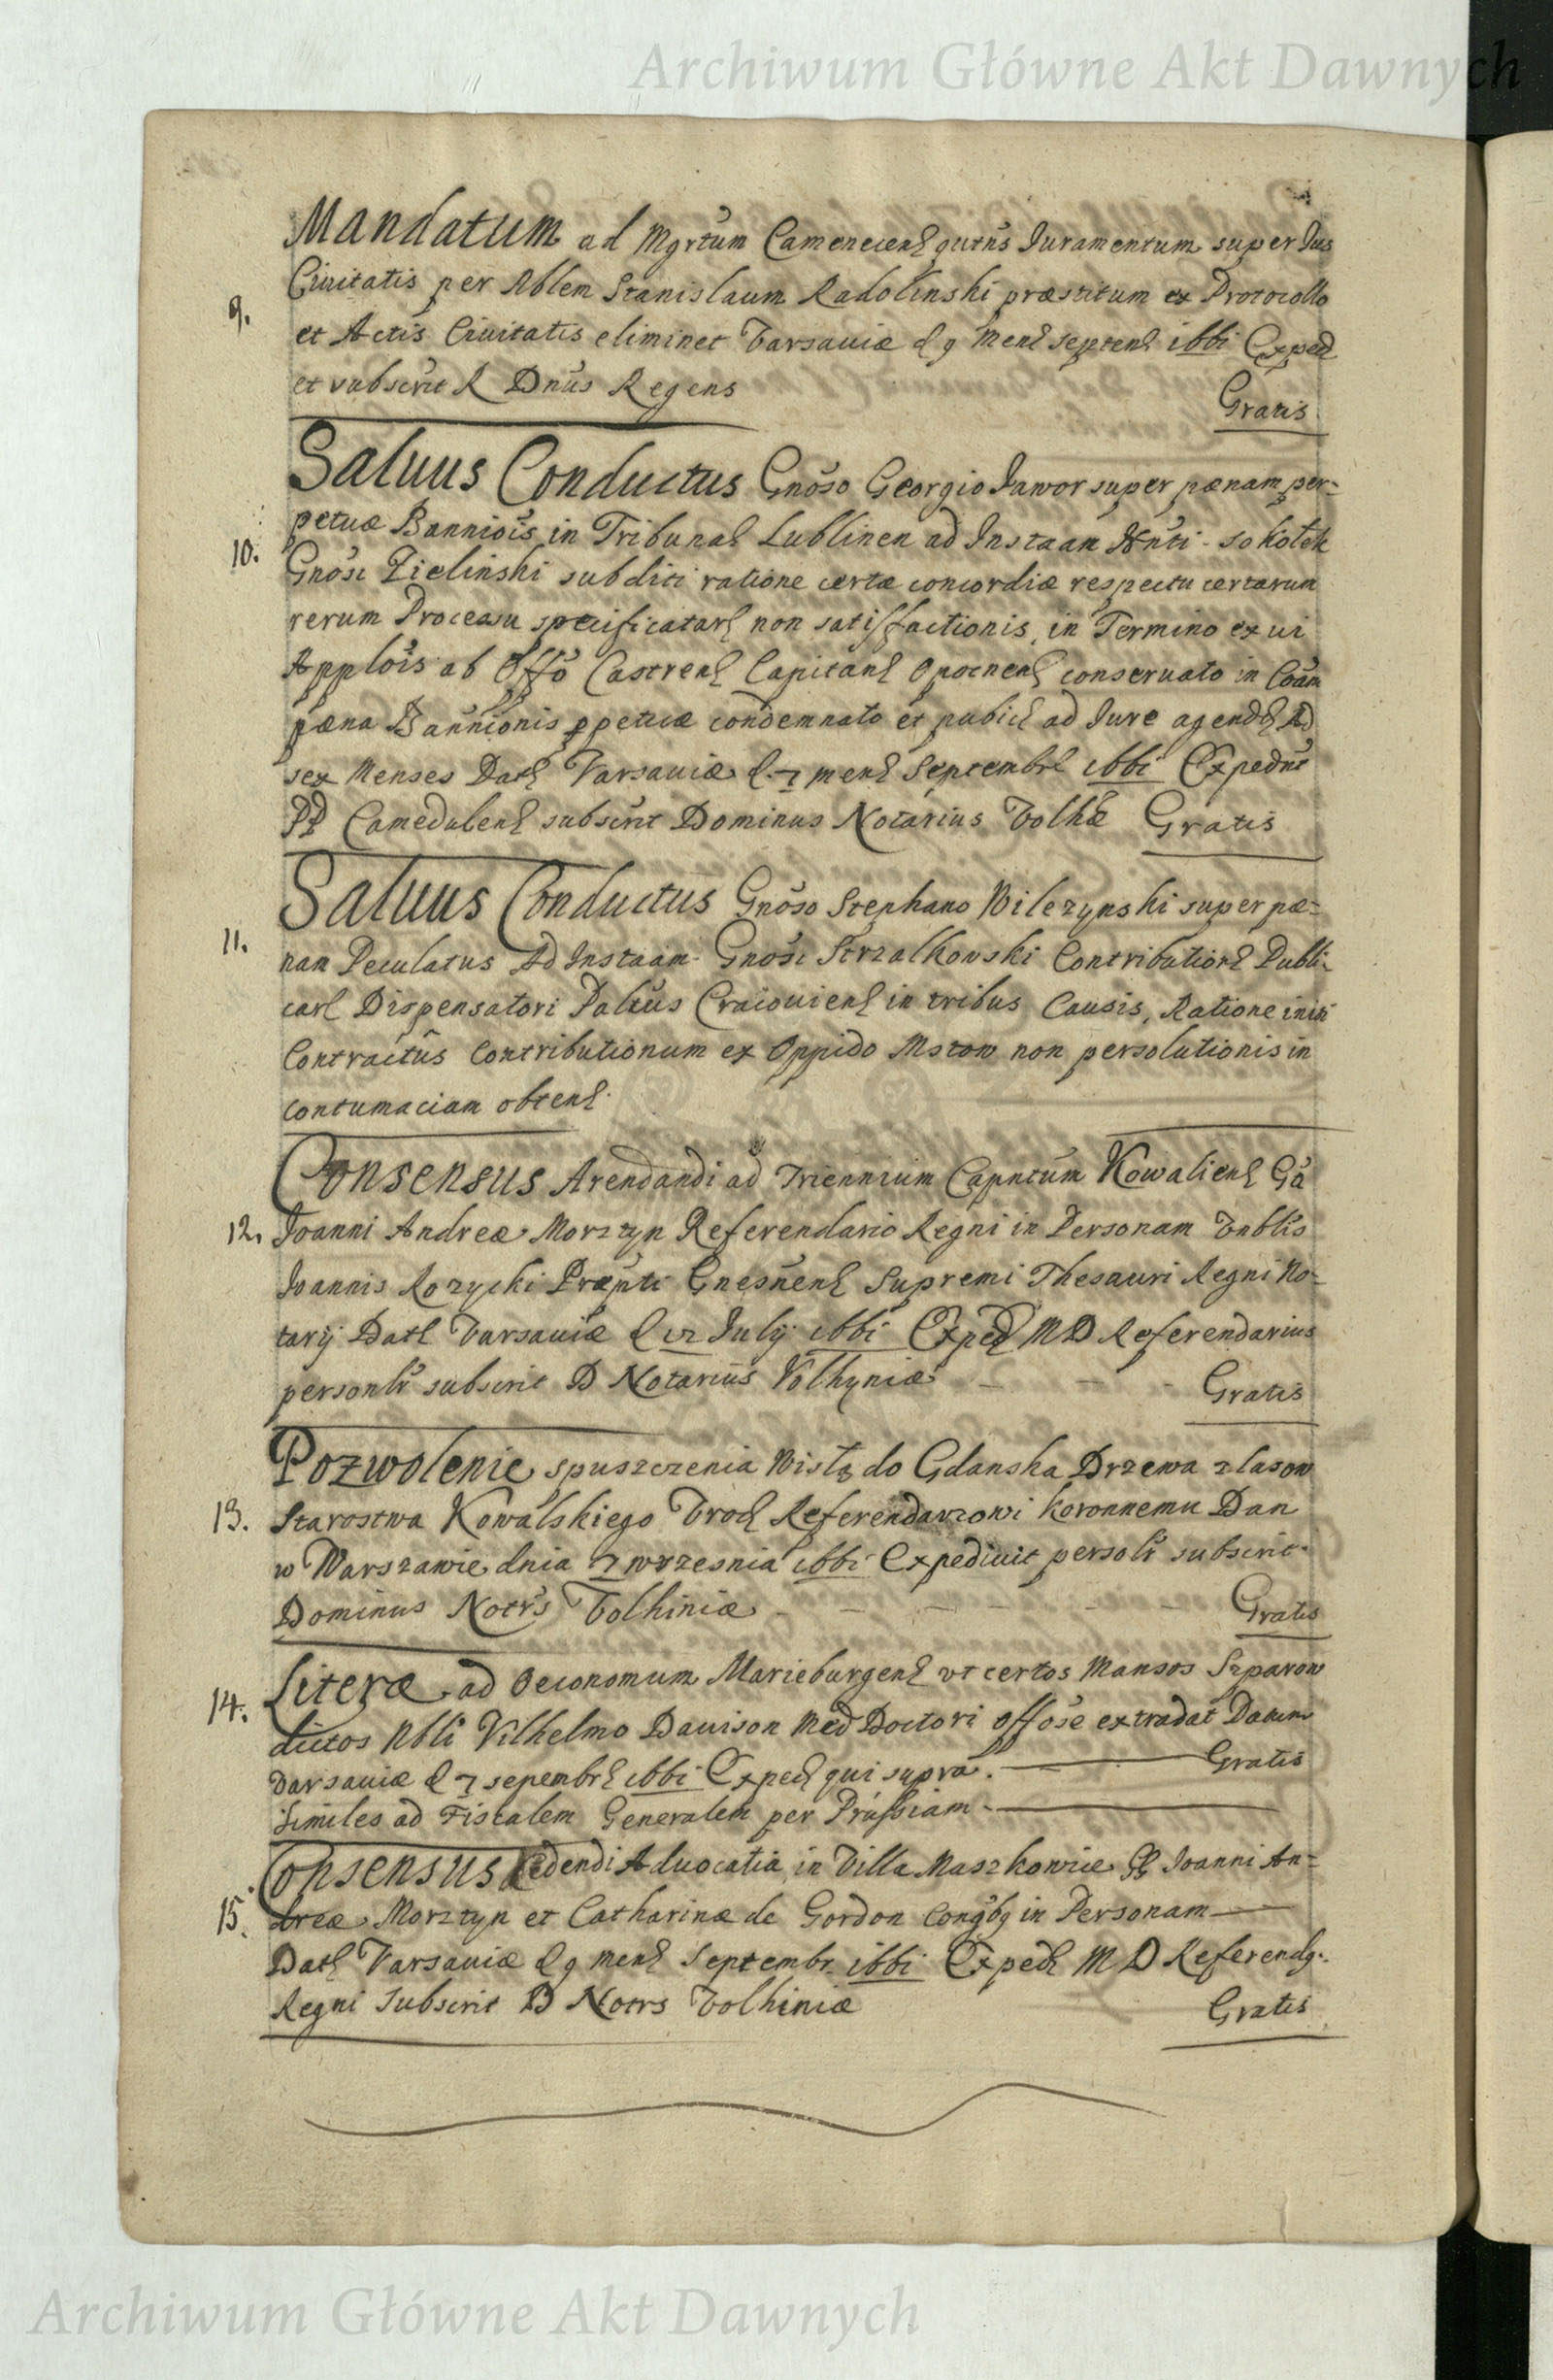 Archiwum Główne Akt Dawnych
Mandatum ad Mgrtum Camenecens quatns Juramentum super Jus
Ciuitatis per Nblem Stanislaum Radolinski præstitum ex Protocollo
9.
et Actis Ciuitatis eliminet Varsauiæ d 9 Mens septens ibbi Exped
et subscrit R Dnus Regens
Gratis
Saluus Conductus Gnoso Georgio Jawor super pænam per-
petuæ Banniois in Tribunal Lublinen ad Instaam
10.
Gnosi Zielinski subditi ratione certæ concordiæ respectu certarum
rerum Processu specificatars non satisfactionis, in Termino ex ui
Applois ab Offo Castrens Capitans Opocnens conseruato in Coam
pæna Bannionis ppetuæ condemnato et publice ad Jure agends Ad
sex Menses Dats Varsauiæ d 7 mens Septembrs ibbi Expednt
PP Camedulens subscrit Dominus Notarius Volhæ Gratis
Saluus Conductus Gnoso Stephano Wilczynski super pæ-
11.
nam Peculatus Ad Instaam Gnosi Strzalkowski Contributions Publi-
cars Dispensatori Paltus Cracouiens in tribus Causis, Ratione initi
Contractus Contributionum ex Oppido Mstow non persolutionis in
contumaciam obtens.
Consensus Arendandi ad Triennium Capntum Kowaliens Gã
12. Joanni Andreæ Morsztyn Referendario Regni in Personam Vnblis
Joannis Rozycki Præpti Gnesnens Supremi Thesauri Regni No-
tarij Dats Varsauiæ d 12 July ibbi Exped MD Referendarius
personlr subscrit D Notarius Volhyniæ
Gratis
Pozwolenie spuszczenia Wisłą do Gdanska Drzewa z lasow
13. Starostwa Kowalskiego Vrod Referendarzowi koronnemu Dan
w Warszawie dnia 7 wrzesnia ibbi Expediuit persolr subscrit
Dominus Notrs Volhiniæ
Gratis
Literæ ad Oeconomum Marieburgens vt certos Mansos Szparow
14.
dictos Nbli Vilhelmo Dauison Med Doctori offose extradat Datum
Varsauiæ d 7 sepembrs ibbi Exped qui supra. Gratis
Similes ad Fiscalem Generalem per Prussiam
Consensus Cedendi Aduocatia in Villa Maszkowice GG Joanni An-
15. dreæ Morsztyn et Catharinæ de Gordon Congbg in Personam
Dats Varsauiæ d 9 mens Septembr ibbi Exped M D Referends.
Regni Subscrit D Notrs Volhiniæ
Gratis
Archiwum Główne Akt Dawnych